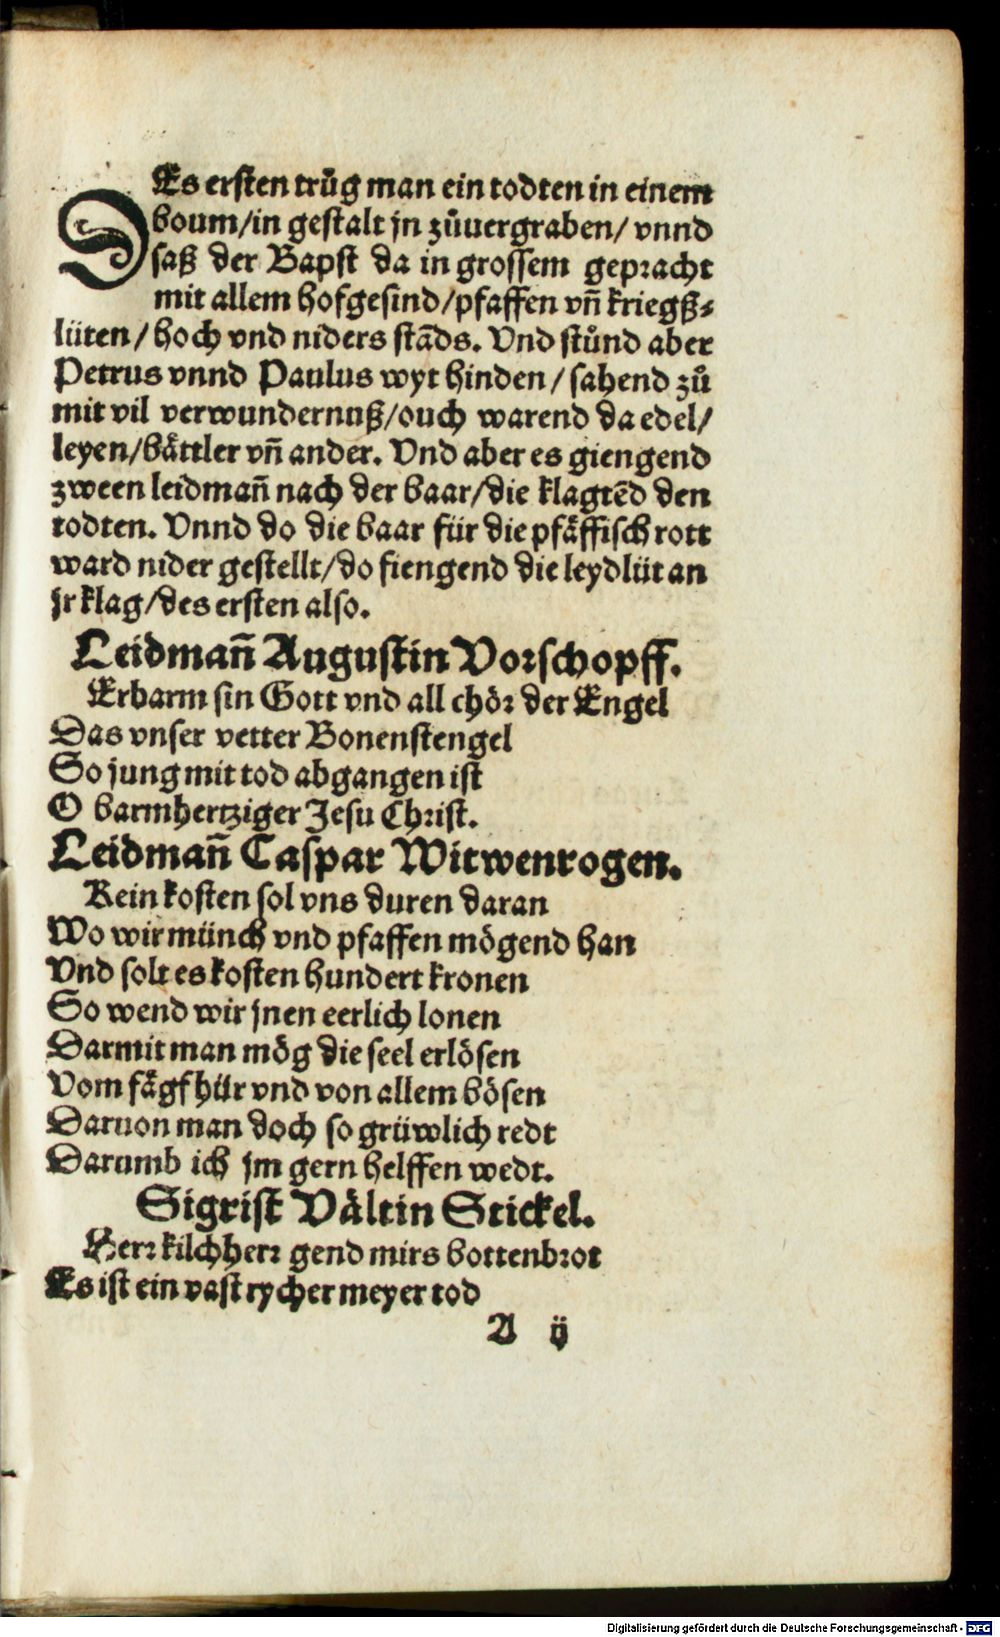 DEs ersten trůg man ein todten in einem
boum/in gestalt jn zůuergraben/ vnnd
saß der Bapst da in grossem gepracht
mit allem hofgesind/pfaffen vñ kriegß⸗
lüten/ hoch vnd niders stāds. Vnd stůnd aber
Petrus vnnd Paulus wyt hinden/ sahend zů
mit vil verwundernuß/ouch warend da edel/
leyen/båttler vñ ander. Vnd aber es giengend
zween leidmañ nach der baar/die klagtēd den
todten. Vnnd do die baar für die pfåffisch rott
ward nider gestellt/do fiengend die leydlüt an
jr klag/des ersten also.
Leidmañ Augustin Vorschopff.
Erbarm sin Gott vnd all chör der Engel
Das vnser vetter Bonenstengel
So jung mit tod abgangen ist
O barmhertziger Jesu Christ.
Leidmañ Caspar Witwenrogen.
Kein kosten sol vns duren daran
Wo wir münch vnd pfaffen mögend han
Vnd solt es kosten hundert kronen
So wend wir jnen eerlich lonen
Darmit man mög die seel erlösen
Vom fägfhür vnd von allem bösen
Daruon man doch so grüwlich redt
Darumb ich jm gern helffen wedt.
Sigrist Vältin Stickel.
Herr kilchherr gend mirs bottenbrot
Es ist ein vast rycher meyer tod
A ij
Digitalisierung gefördert durch die Deutsche Forschungsgemeinschaft - DFG